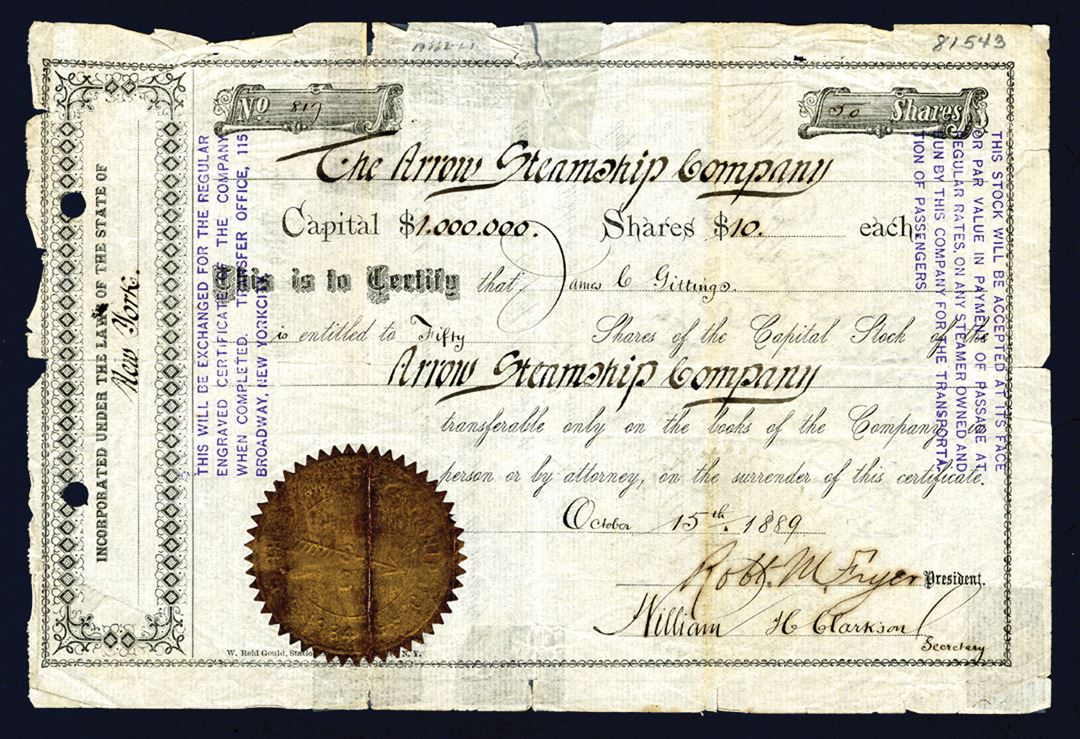 81543
No 817
50 Shares
The Arrow Steamship Company
Capital $1.000.000. Shares $10. each.
This is to Certify that James C Gittings.
is entitled to Fifty Shares of the Capital Stock of the
Arrow Steamship Company
transferable only on the books of the Company in
person or by attorney, on the surrender of this certificate.
October 15th. 1889
Robt. M. Fryer President.
William H Clarkson
Secretary
W. Reid Gould, N.Y.
INCORPORATED UNDER THE LAW OF THE STATE OF
New York.
THIS WILL BE EXCHANGED FOR THE REGULAR
ENGRAVED CERTIFICATE OF THE COMPANY
WHEN COMPLETED. TRANSFER OFFICE, 115
BROADWAY, NEW YORK CITY
THIS STOCK WILL BE ACCEPTED AT ITS FACE
OR PAR VALUE IN PAYMENT OF PASSAGE AT
REGULAR RATES, ON ANY STEAMER OWNED AND
RUN BY THIS COMPANY FOR THE TRANSPORTA-
TION OF PASSENGERS